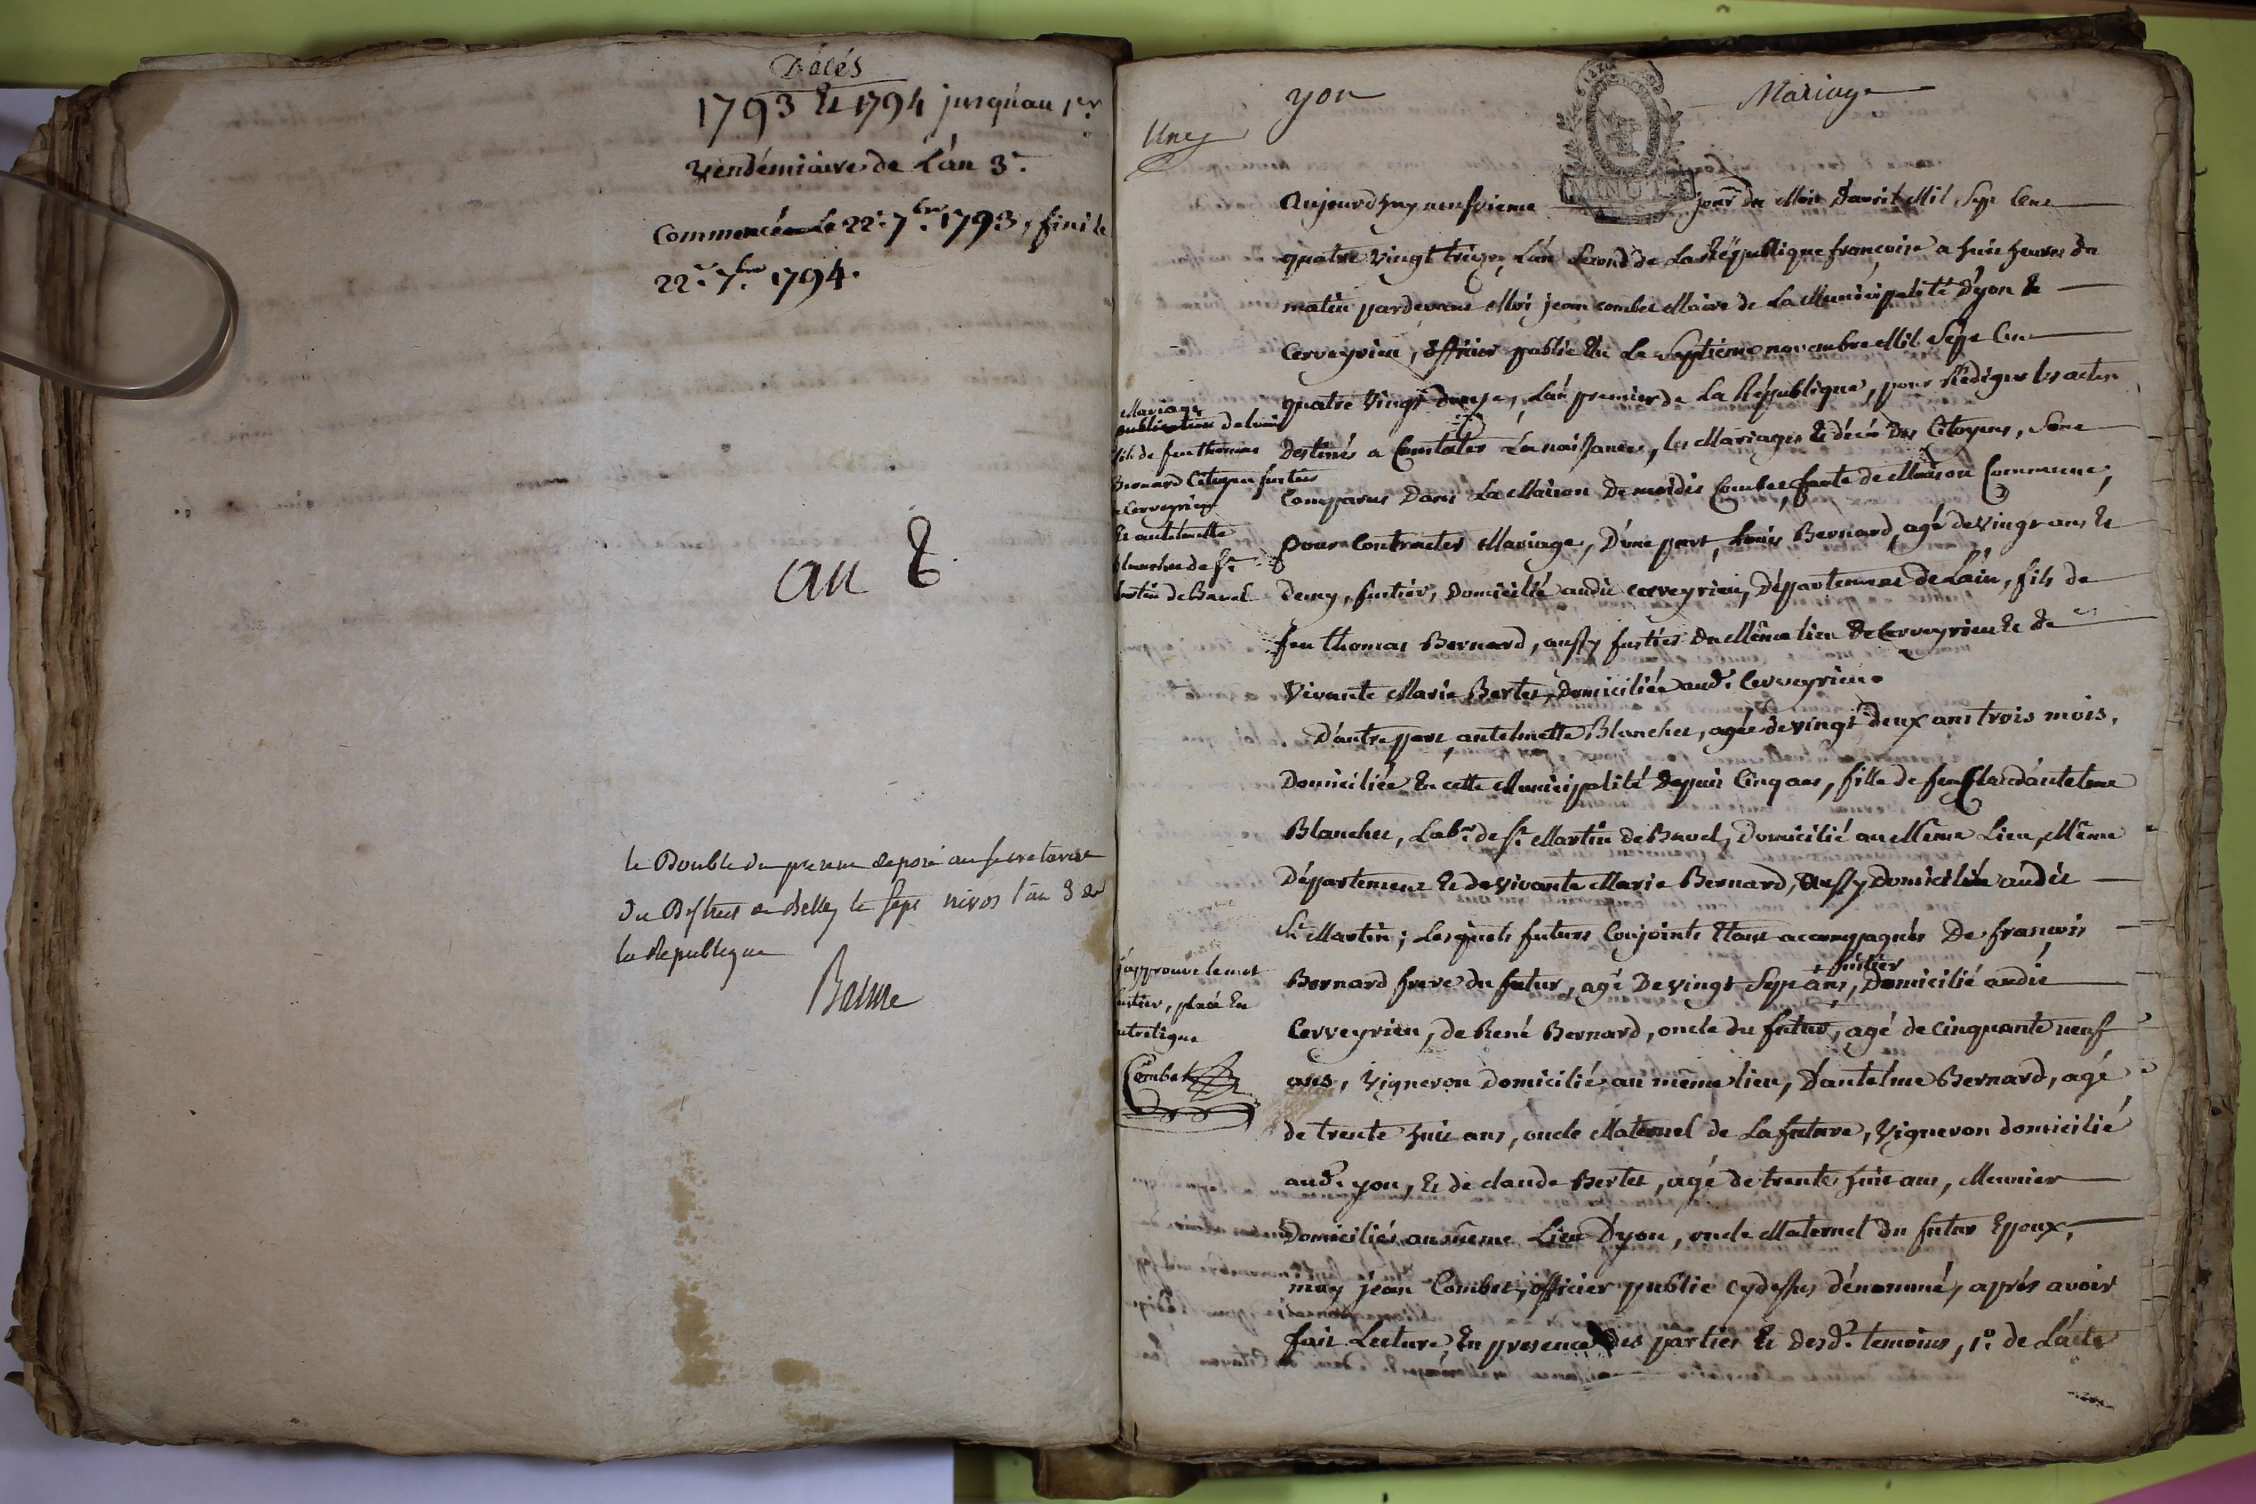 Décés
1793 & 1794 jusqu'au 1er
vendémiaire de L'an 3e.
Commencée Le 22e 7bre 1793, fini le
22e 7bre 1794.
an 2
le Double du present deposé au secretariat
du District de Belley le sept nivos l'an 3 de
la Republique
Baume
yon
Mariage
Une
MINUTE
Aujourdhuy neufvieme jour du Mois Davril Mil Sept Cent
quatre Vingt treize, L'an second de La République françoise a huit heures du
matin pardevant Moi jean combet Maire de La Municipalité D'yon &
Cerveyrieu, officier public Elu Le Septieme novembre Mil Sept Cent
quatre Vingt Douze, L'an premier de La République, pour Rédiger les actes
Destinés a Constater La naissance, les Mariages & décés Des Citoyens, Sont
Comparus Dans La Maison De Combet faute de Maison Commune,
pour Contracter Mariage, D'une part, Louis Bernard, agé de Vingt ans &
demy, fustier, Domicilié audit cerveyrieu, Département de L'ain, fils de
feu thomas Bernard, aussy fustier du Même lieu De Cerveyrieu & de
Vivante Marie Bertet, Domiciliée aud. Cerveyrieu.
D'autre part, antelmette Blanchet, agée de vingt deux ans trois mois,
Domiciliée En cette Municipalité Depuis Cinq ans, fille de feu Claude antelme
Blanchet, Labr. de St. Martin de Bavel, Domicilié au Même Lieu, Même
Département & de Vivante Marie Bernard, Aussy Domiciliée audit
St. Martin; Lesquels futurs Conjoints Etant accompagnés De françois
Bernard frere du futur, agé De vingt Sept ans, fustier Domicilié audit
Cerveyrieu, de René Bernard, oncle du futur, agé de Cinquante neuf
ans, Vigneron Domicilié au même lieu, D'antelme Bernard, agé
de trente huit ans, oncle Maternel de La future, Vigneron domicilié
aud. yon, & de claude Bertet, agé de trente huit ans, Meunier
Domiciliés au même Lieu D'yon, oncle Maternel du futur Epoux,
moy jean Combet, officier public cydessus dénommé, aprés avoir
fait Lecture En presence Des parties & des d. temoins, 1°. de L'acte
Mariage
publication de Louis
fils de feu thomas
Bernard Citoyen fustier
a Cerveyrieu
& antelmette
blanchet de St.
martin de Bavel
j'approuve le mot
fustier, placé En
interligne
Combet